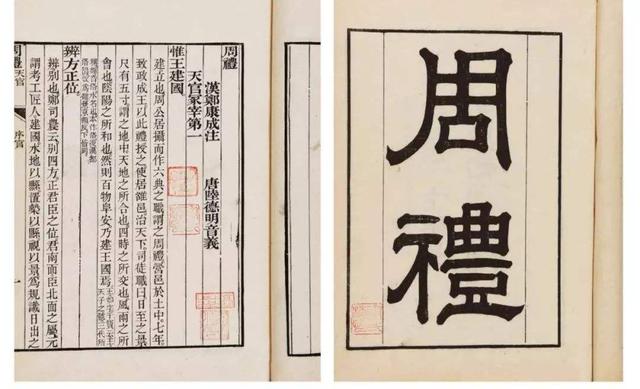 周禮
漢鄭康成注 唐陸德明音義
天官冢宰第一
惟王建國
建立也周公居攝而作六典之職謂之周禮營邑於土中七年
致政成王以此禮授之使居雒邑治天下司徒職曰日至之景
尺有五寸謂之地中天地之所合也四時之所交也風雨之所
會也陰陽之所和也然則百物阜安乃建王國焉
辨方正位
辨别也鄭司農云别四方正君臣之位君南面臣北面之屬元
謂考工匠人建國水地以縣置槷以縣視以景為規識日出之
周禮 天官 序官 一
周禮